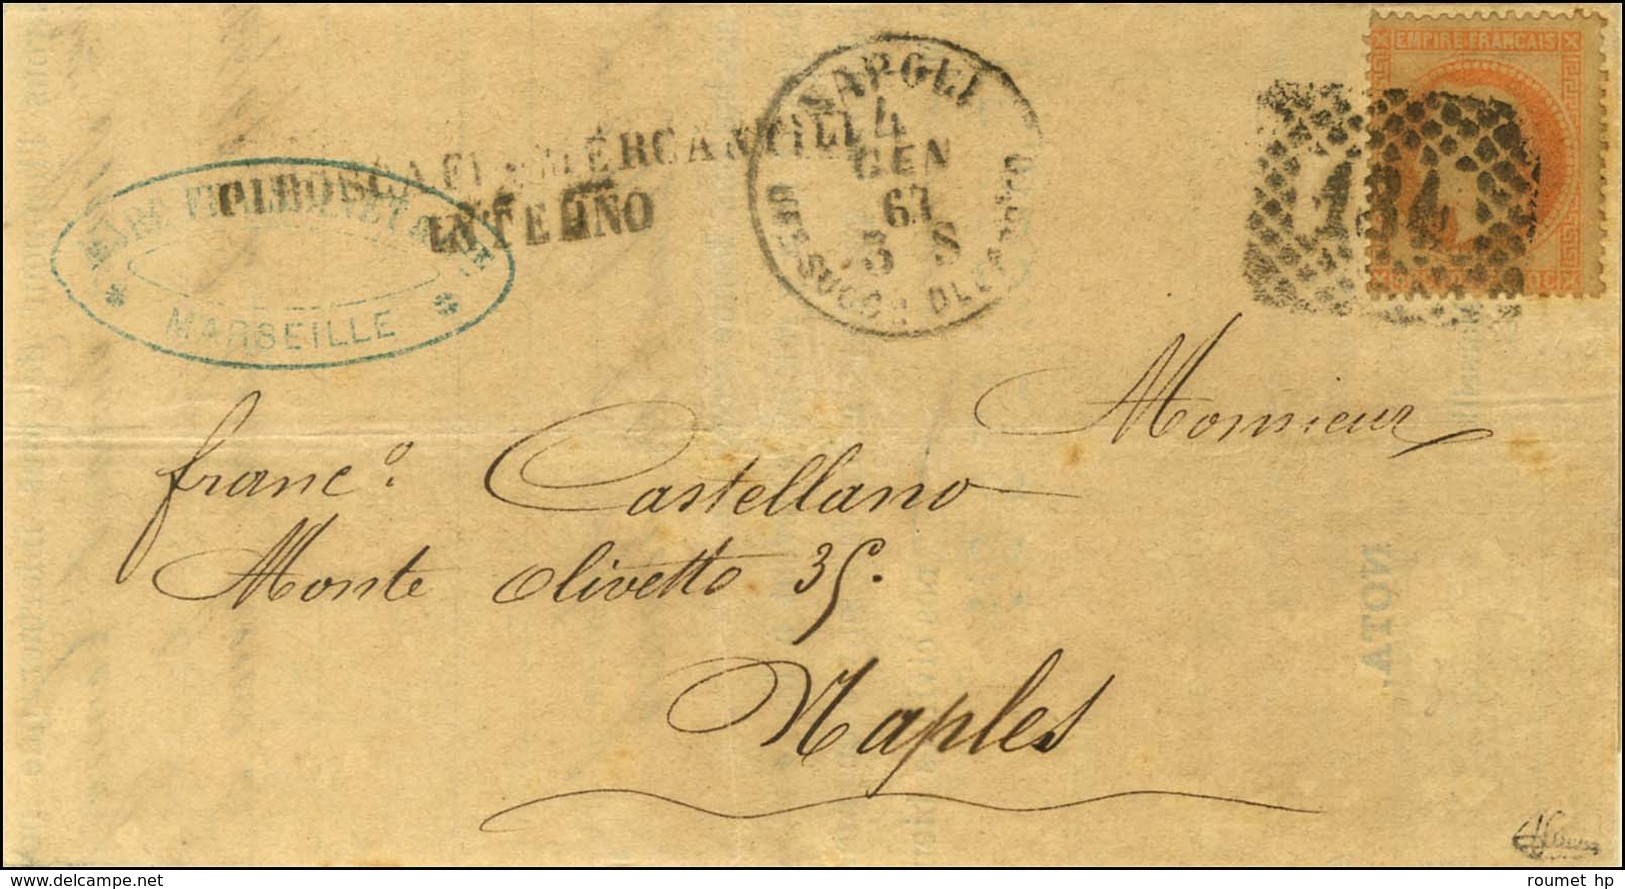 EMPIRE FRANÇAIS
NAPOLI
4
GEN
67
3 S
PIROSCAFI MERCANTILI
INTERNO
MARSEILLE
134
Monsieur
franc.º Castellano
Monte Olivetto 35.
Naples
NOTA
roumet hp
www.delcampe.net